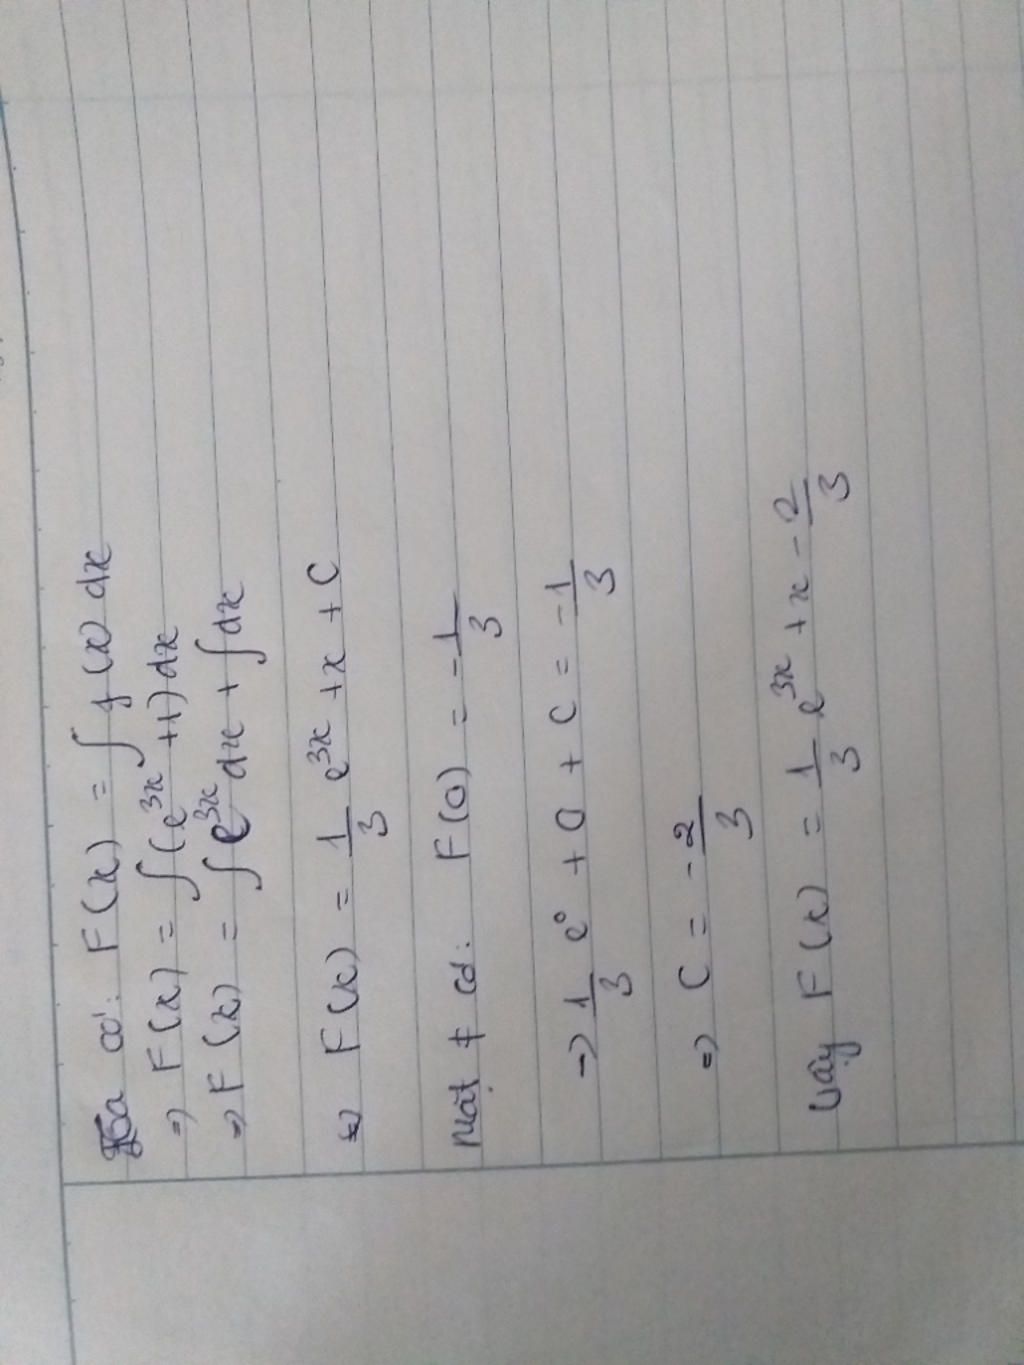 Ta có: F(x) = ∫ f(x) dx
=> F(x) = ∫(e^{3x} +1) dx
=> F(x) = ∫ e^{3x} dx + ∫ dx
<=> F(x) = \frac{1}{3} e^{3x} + x + C
Mặt ≠ có: F(0) = -\frac{1}{3}
-> \frac{1}{3} e^{0} + 0 + C = -\frac{1}{3}
=> C = -\frac{2}{3}
Vậy F(x) = \frac{1}{3} e^{3x} + x - \frac{2}{3}